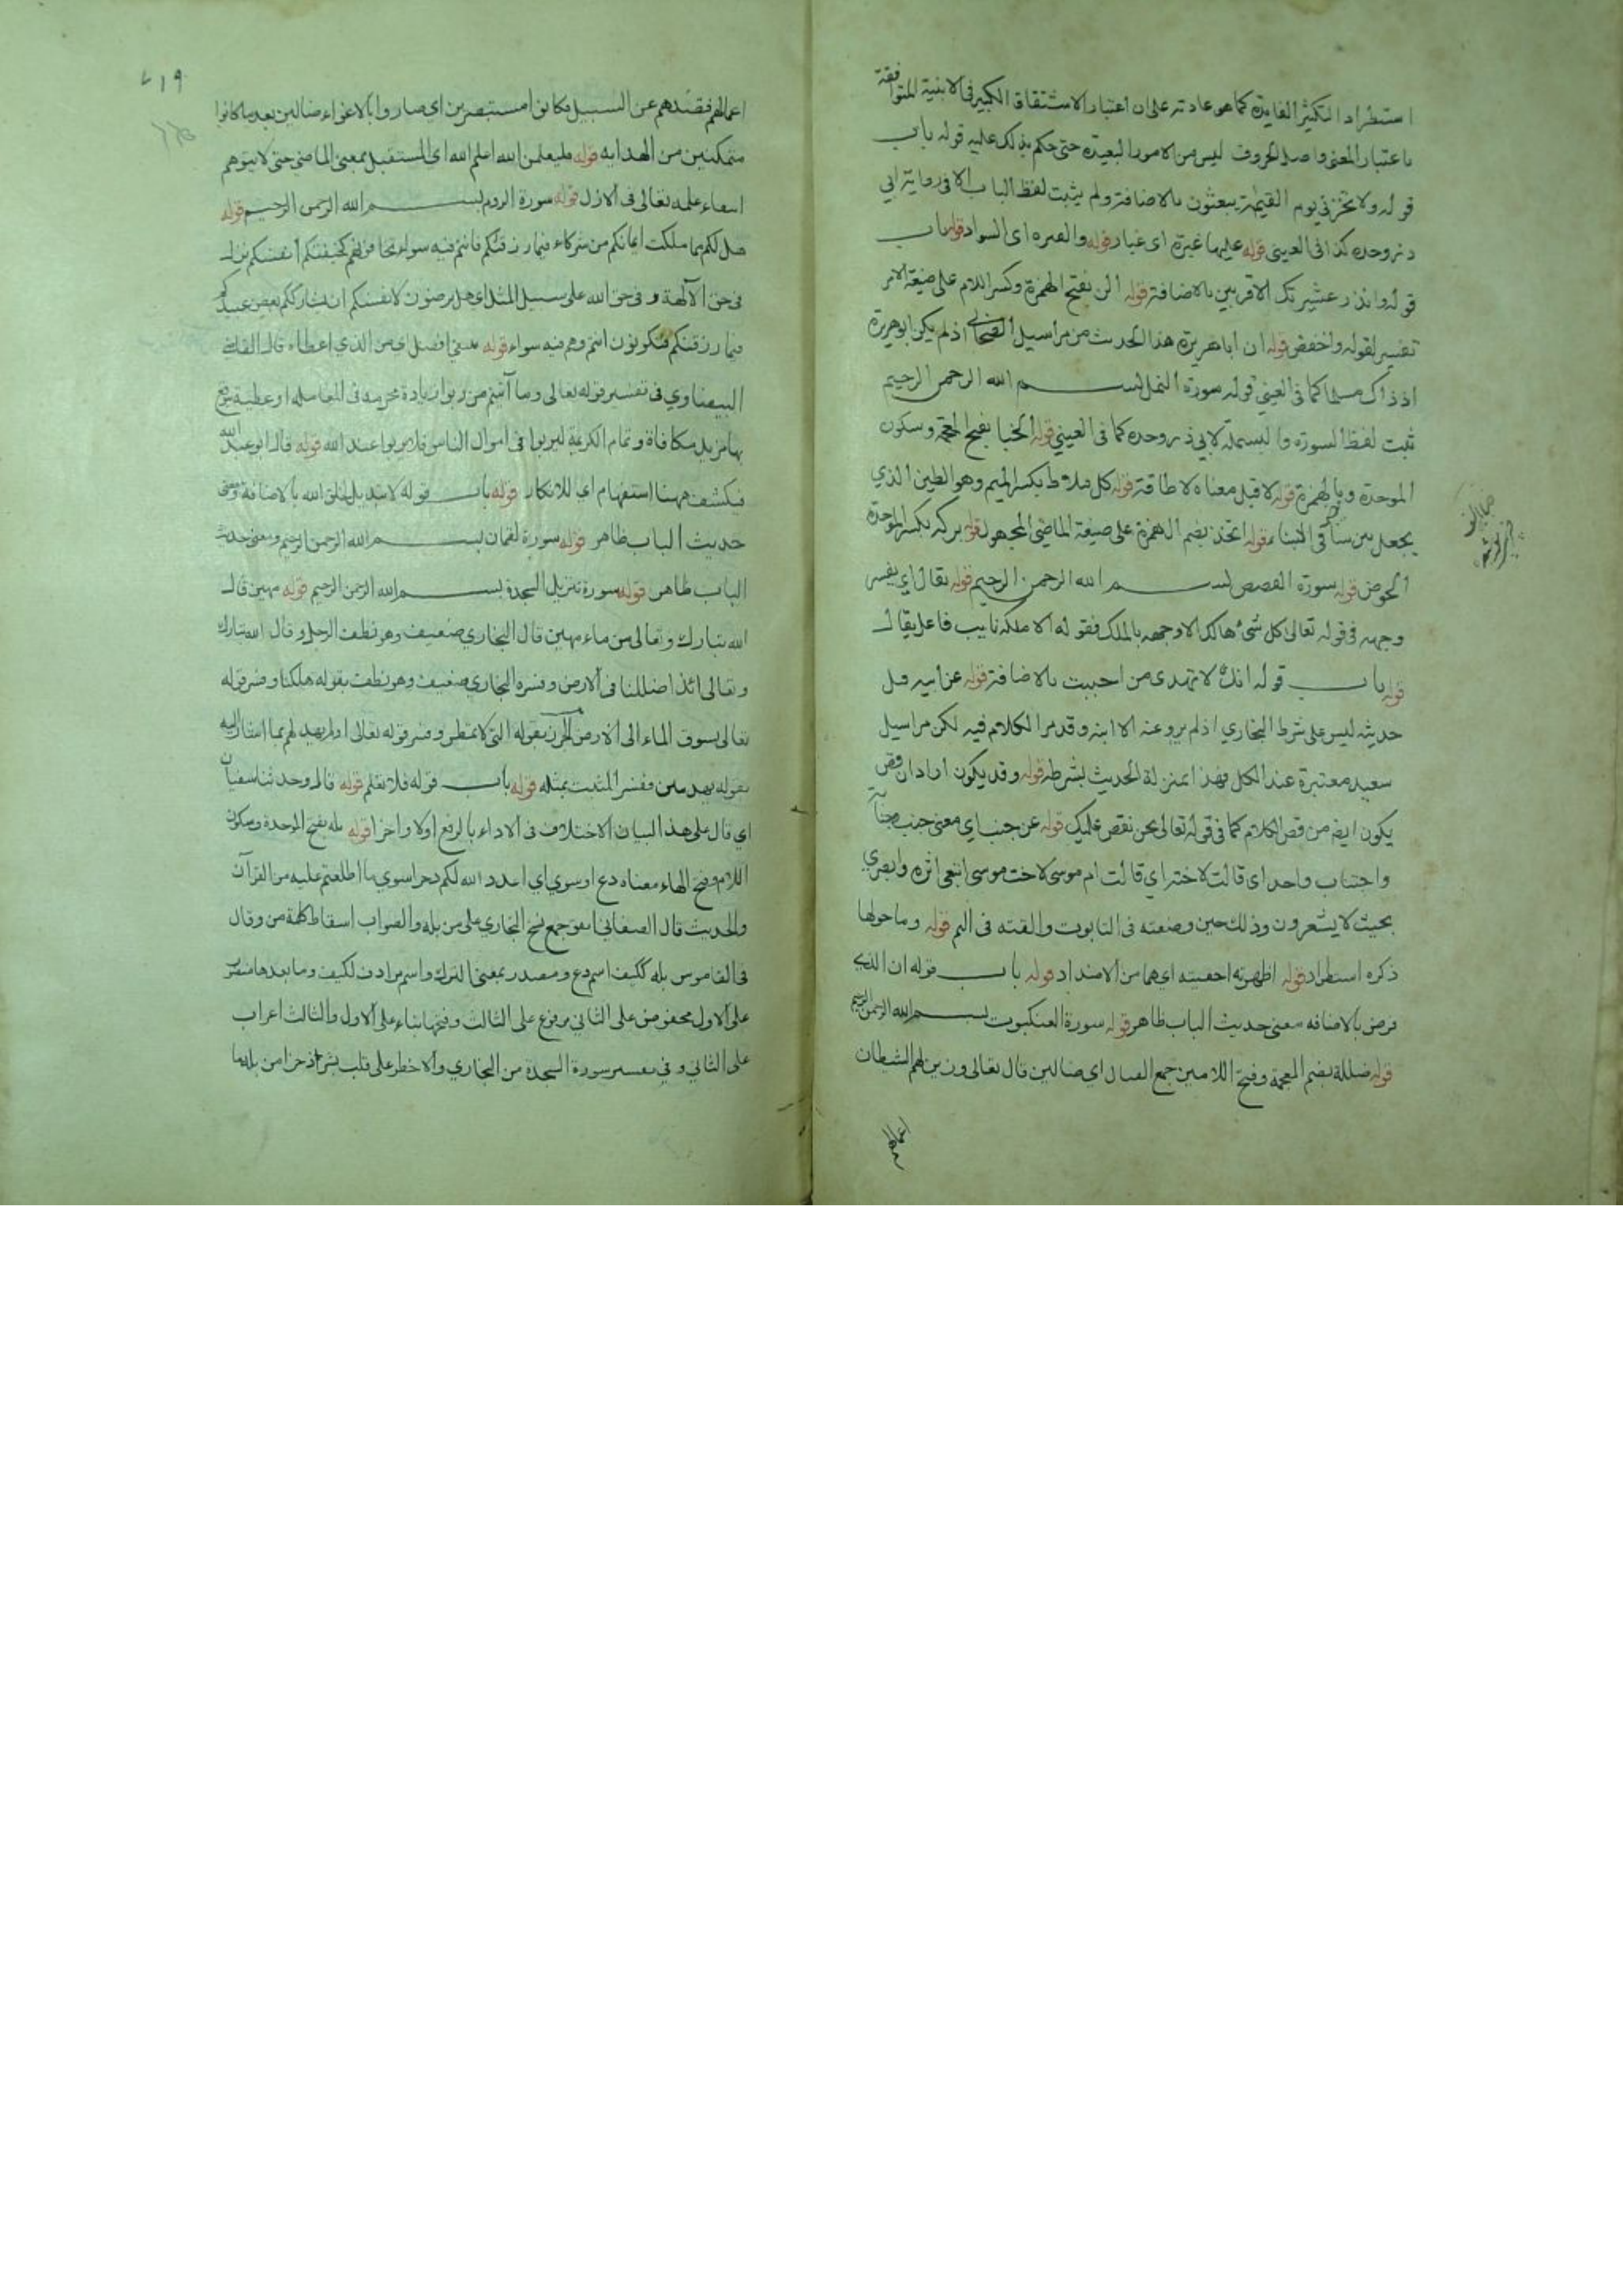 استطراد التكثير الفايدة كما هو عادته على ان اعتبار الاشتقاق الكبير في الابنية المتوافقة
باعتبار المعنى واصل الحروف ليس من الامور البعيدة حتى حكم بذلك عليه قوله باب
قوله ولا تخزني يوم القيمة يبعثون بالاضافة ولم يثبت لفظ الباب الا في رواية ابي
ذر وحده كذا في العيني قوله عليها غبرة اى غبار قوله والغبره اى السواد قوله باب
قوله وانذر عشيرتك الاقربين بالاضافة قوله الن بفتح الهمزة وكسر اللام على صيغة الامر
تفسير لقوله واخفض قوله ان ابا هريرة هذا الحديث من مراسيل الصحابي اذ لم يكن ابو هريرة
اذ ذاك مسلما كما في العيني قوله سورة النمل بسم الله الرحمن الرحيم
ثبت لفظ السورة والبسملة لابي ذر وحده كما في العيني قوله الخبا بفتح المعجمة وسكون
الموحدة وبالهمزة قوله لا قبل معناه لا طاقة قوله كل ملاط بكسر الميم وهو الطين الذي
يجعل بين ساقي البناء قوله اتخذ بضم الهمزة على صيغة الماضي المجهول قوله بركة بكسر الموحدة
الحوض قوله سورة القصص بسم الله الرحمن الرحيم قوله يقال اي يفسر
وجهه في قوله تعالى كل شئ هالك الا وجهه بالملك فقوله الا ملكه نايب فاعل يقال
قوله باب قوله انك لا تهدى من احببت بالاضافة قوله عن ابيه قيل
حديثه ليس على شرط البخاري اذ لم يرو عنه الا ابنه وقد مر الكلام فيه لكن مراسيل
سعيد معتبرة عند الكل فهذا بمنزلة الحديث بشرطه قوله وقد يكون اراد ان قص
يكون ايضا من قص الكلام كما في قوله تعالى نحن نقص عليك قوله عن جنب اي معنى جنب جنابة
واجتناب واحد اى قالت لاخته اي قالت ام موسى لاخت موسى اتبعي اثره وابصري
بحيث لا يشعرون وذلك حين وضعته في التابوت والقته في اليم قوله وما حولها
ذكره استطراد قوله اظهرته اخفيته اي هما من الاضداد قوله باب قوله ان الذي
فرض بالاضافه معنى حديث الباب ظاهر قوله سورة العنكبوت بسم الله الرحمن الرحيم
قوله ضللة بضم المعجمة وفتح اللامين جمع الضال اي ضالين قال تعالى وزين لهم الشيطان
اعمالهم
٤١٩
اعمالهم فصدهم عن السبيل وكانوا مستبصرين اي صاروا بالاغواء ضالين بعد ما كانوا
متمكنين من الهدايه قوله فليعلمن الله علم الله اى المستقبل بمعنى الماضي حتى لا يتوهم
علمه تعالى في الازل قوله سورة الروم بسم الله الرحمن الرحيم قوله
هل لكم مما ملكت ايمانكم من شركاء فيما رزقناكم فانتم فيه سواء تخافونهم كخيفتكم انفسكم نزل
في حق الآلهة و في حق الله على سبيل المثل اي هل يرضون لانفسكم ان يشارككم بعض عبيدكم
فيما رزقنكم فتكونون انتم وهم فيه سواء قوله يبتغي افضل من الذي اعطاه قال القاضي
البيضاوي في تفسير قوله تعالى وما آتيتم من ربوا زيادة محرمه في المعامله او عطية يتوقع
بها مزيد مكافاة وتمام الكريمة ليربوا في اموال الناس فلا يربوا عند الله قوله قال ابو عبد الله
فيكشف ههنا استفهام اي للانكار قوله باب قوله لا تبديل لخلق الله بالاضافة ومعنى
حديث الباب ظاهر قوله سورة لقمان بسم الله الرحمن الرحيم ومعنى حديث
الباب ظاهر قوله سورة تنزيل السجدة بسم الله الرحمن الرحيم قوله مهين قال
الله تبارك وتعالى من ماء مهين قال البخاري ضعيف وهو نطفة الرجل وقال الله تبارك
وتعالى ائذا ضللنا في الارض وفسره البخاري بقوله هلكنا وفسر قوله
تعالى نسوق الماء الى الارض الجرز بقوله التي لا تمطر وفسر قوله تعالى اولم يهد لهم بما اشار اليه
بقوله يهد يبين وفسر المثبت بمثله قوله باب قوله فلا تعلم قوله قال وحدثنا سفيان
اي قال على هذا البيان الاختلاف في الاداء بالرفع اولا واخرا قوله بله بفتح الموحدة وسكون
اللام وفتح الهاء معناه دع او سوي اي اعدد الله لكم ذخرا سوي ما اطلعتم عليه من القرآن
والحديث قال الصغاني اتفق جمع نسخ البخاري على من بله والصواب اسقاط كلمة من وقال
في القاموس بله ككيف اسم دع ومصدر بمعنى الترك واسم مرادف لكيف وما بعدها منصوب
على الاول مخفوض على الثاني مرفوع على الثالث وفتحها بناء على الاول والثالث اعراب
على الثاني و في تفسير سورة السجدة من البخاري ولا خطر على قلب بشر ذخرا من بله ما